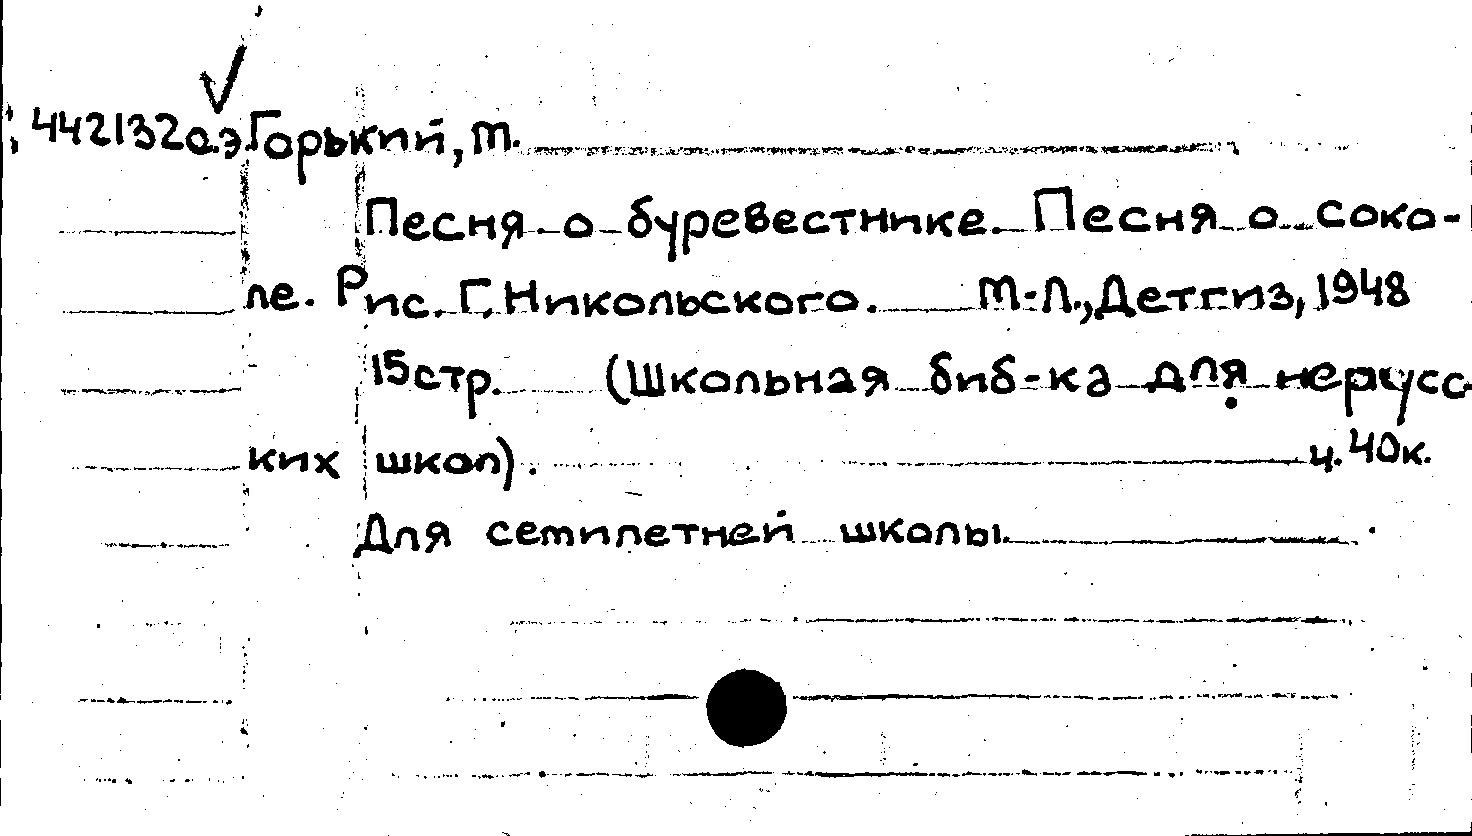 442132а.э Горький, М.
Песня о буревестнике. Песня о соко-
ле. Рис. Г. Никольского. М-Л., Детгиз, 1948
15стр. (Школьная биб-ка для нерусс-
ких школ). ц. 40к.
Для семилетней школы.